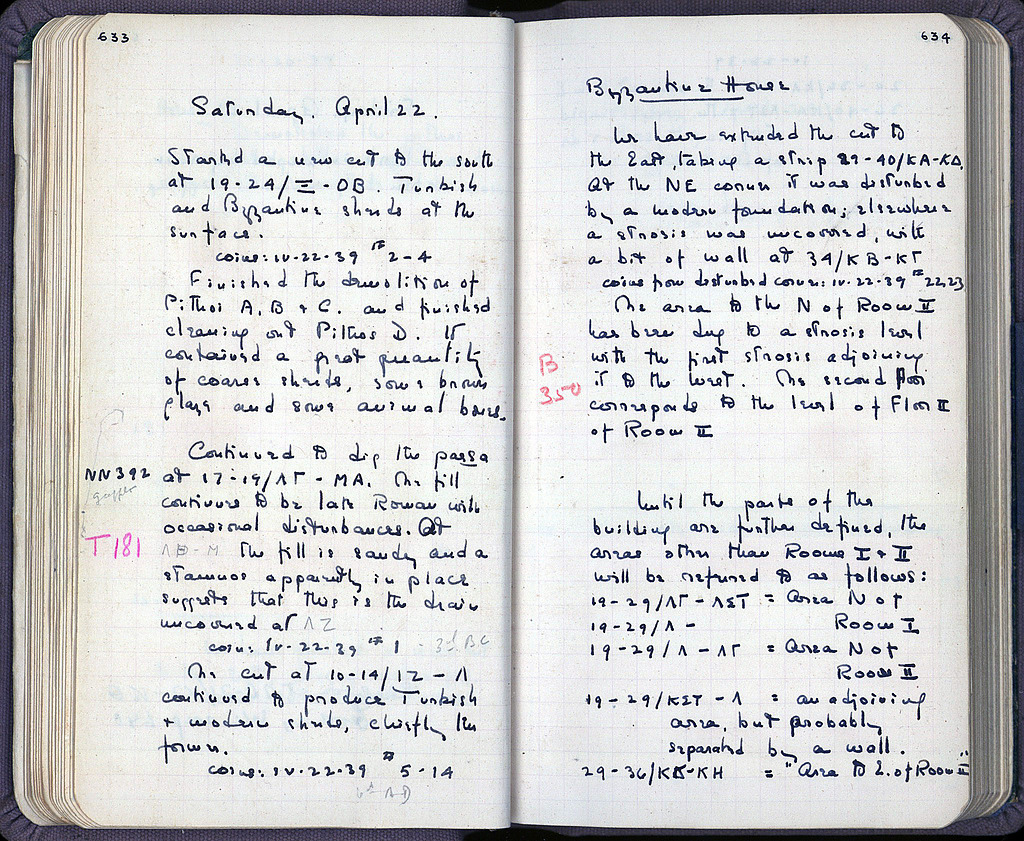 633
Saturday. April 22.
Started a new cut to the south
at 19-24/Ξ-ΟΒ. Turkish
and Byzantine sherds at the
surface.
coins: IV-22-39 # 2-4
Finished the demolition of
Pithoi A, B + C. and finished
cleaning out Pithos D. It
contained a great quantity
of coarse sherds, some brown
glaze and some animal bones.
Continued to dig the passa
NN392
at 17-19/ΛΓ - ΜΑ. The fill
continues to be late Roman with
occasional disturbances. At
T 181
ΛΘ-Μ the fill is sandy and a
stamnos apparently in place
suggests that this is the drain
uncovered at ΛΖ
coin: IV-22-39 # 1 - 3rd BC
The cut at 10-14/ΙΖ - Λ
continued to produce Turkish
+ modern sherds, chiefly the
former.
coins: IV-22-39 # 5-14
6th AD
634
Byzantine House
We have extended the cut to
the East, taking a strip 29-40/ΚΑ-ΚΔ.
At the NE corner it was disturbed
by a modern foundation; elsewhere
a strosis was uncovered, with
a bit of wall at 34/ΚΒ-ΚΓ
coins from disturbed corner: IV-22-39 # 22,23
The area to the N of Room II
has been dug to a strosis level
with the first strosis adjoining
B
350
it to the West. The second floor
corresponds to the level of Floor II
of Room II
Until the parts of the
building are further defined, the
areas other than Rooms I + II
will be referred to as follows:
19-29/ΛΓ - ΛΣΤ = Area N of
19-29/Λ - Room I
19-29/Λ - ΛΓ = Area N of
Room II
19-29/ΚΣΤ - Λ = an adjoining
area, but probably
separated by a wall.
29-36/ΚΔ-ΚΗ = "Area to E. of Room II"